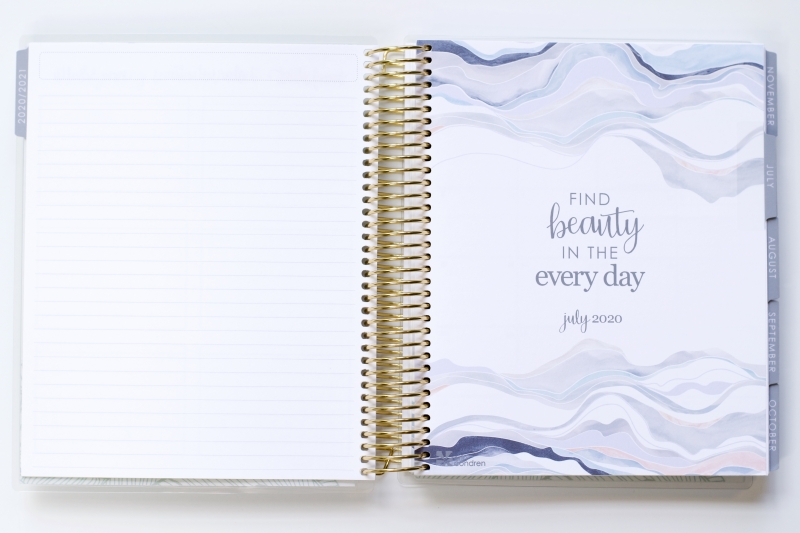 2020/2021
FIND
beauty
IN THE
every day
july 2020
NOVEMBER
JULY
AUGUST
SEPTEMBER
OCTOBER